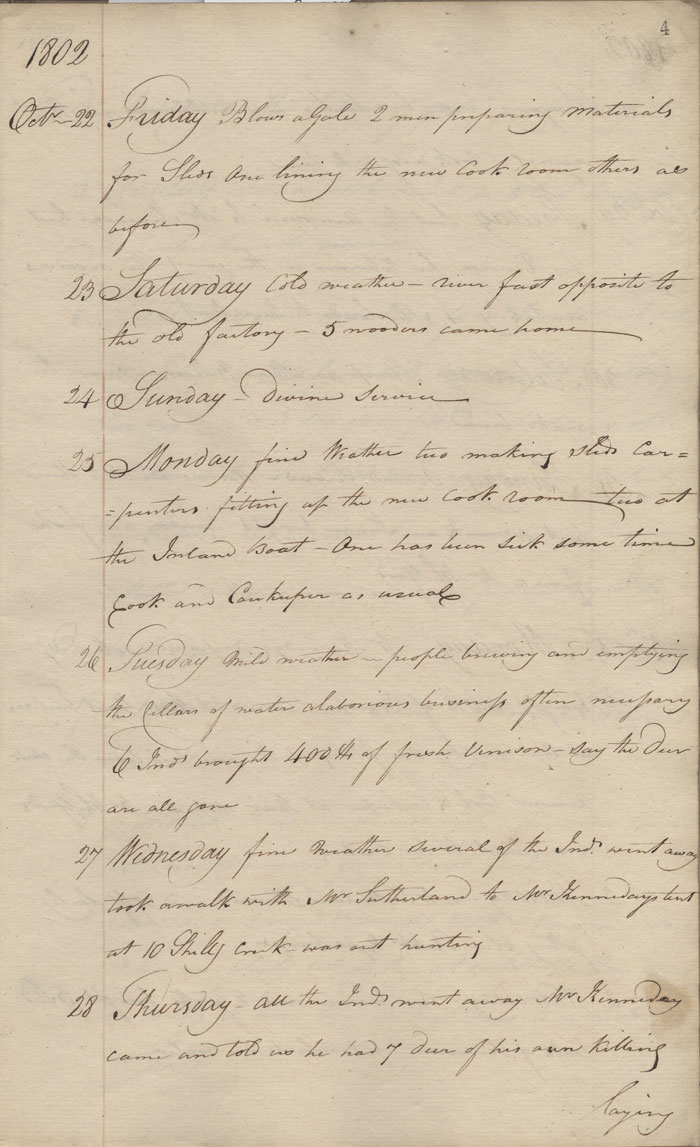 4
1802
Octr 22 Friday Blows a Gale 2 men preparing Materials
for Sleds One lining the new Cook room others as
before
23 Saturday Cold weather - river fast opposite to
the old factory - 5 wooders came home
24 Sunday - Divine Service
25 Monday fine Weather two making Sleds Car=
=penters fitting up the new Cook room two at
the Inland Boat - One has been sick some time
Cook and Cowkeeper as usual
26 Tuesday Mild weather - people brewing and emptying
the Cellars of water alaborious business often necessary
6 Inds brought 400 lb of fresh Venison - say the Deer
are all gone
27 Wednesday fine Weather several of the Inds went away
took awalk with Mr Sutherland to Mr Kennedays tent
at 10 Shilly Creek was out hunting
28 Thursday - all the Inds went away Mr Kenneday
came and told us he had 7 deer of his own killing
laying